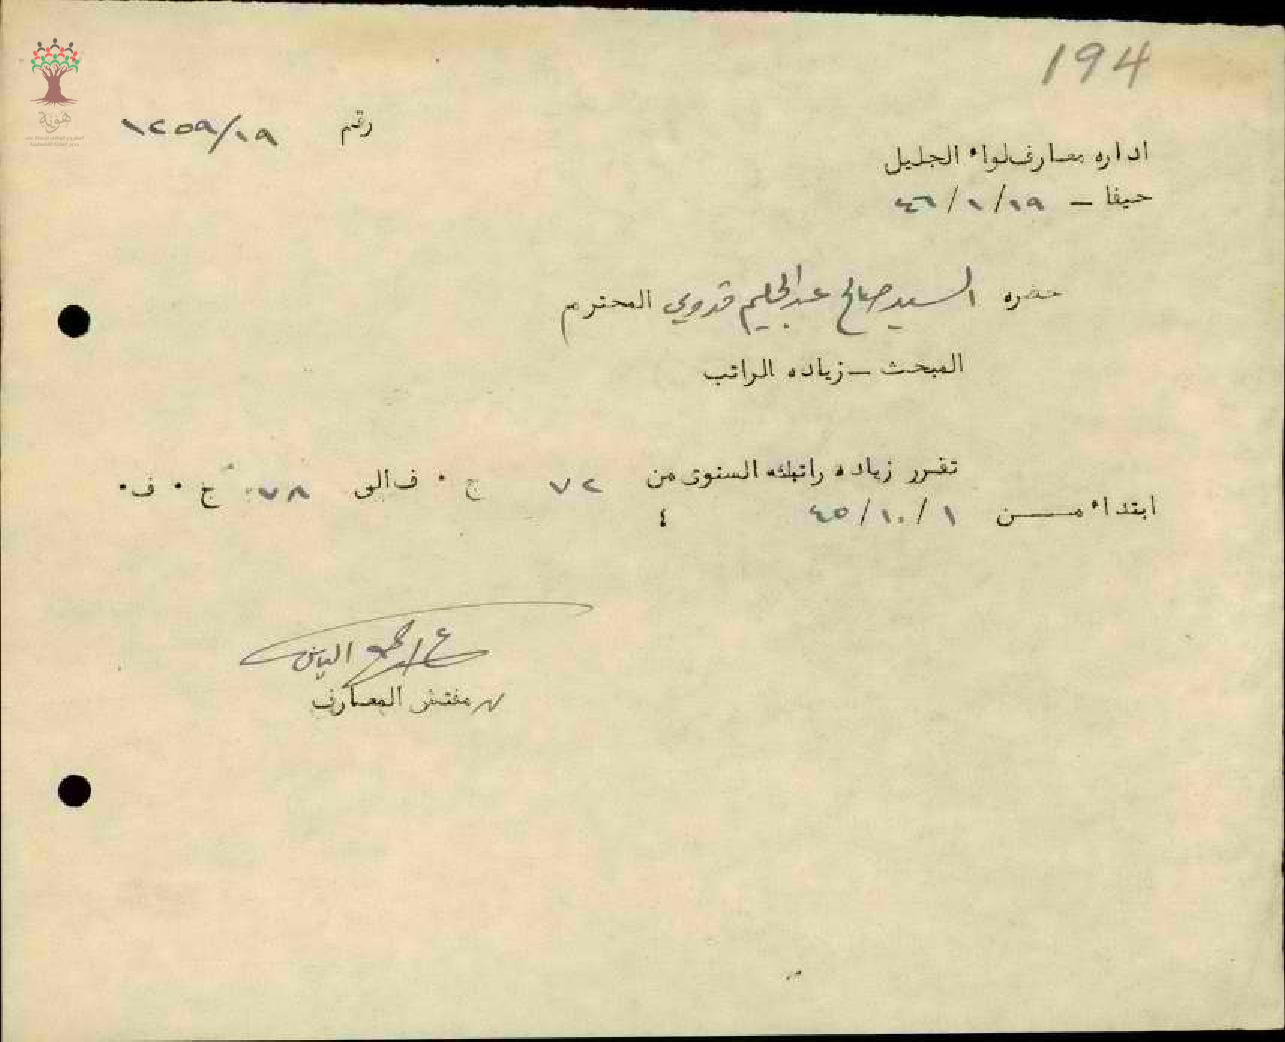 194
رقم ١٢٥٩/١٩
اداره معارف لواء الجليل
حيفا – ١٩/١/٤٦
حضره السيد صالح عبد الحليم قدومي المحترم
المبحث – زياده الراتب
تقرر زياده راتبك السنوى من ٧٢ ج ٠ ف الى ٧٨ ج ٠ ف٠
ابتداء من ١/١٠/٤٥
مفتش المعارف
هوية